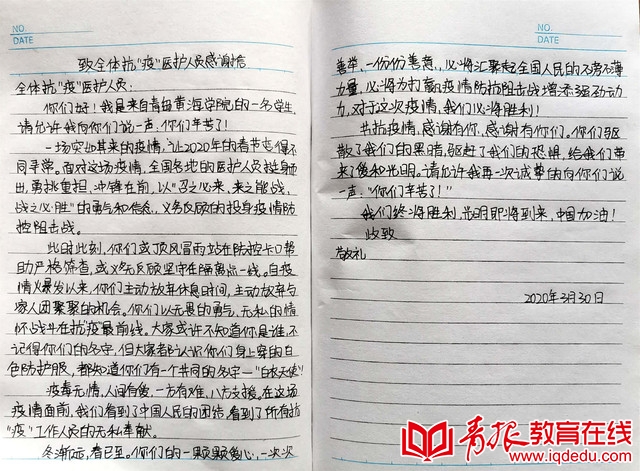 NO.
DATE
致全体抗"疫"医护人员感谢信
全体抗"疫"医护人员：
你们好！我是来自青岛黄海学院的一名学生，
请允许我向你们说一声：你们辛苦了！
一场突如其来的疫情，让2020年的春节变得不
同寻常。面对这场疫情，全国各地的医护人员挺身而
出，勇挑重担，冲锋在前，以"召之必来，来之能战，
战之必胜"的勇气和信念，义务反顾的投身疫情防
控阻击战。
此时此刻，你们或顶风冒雨站在防控卡口帮
助严格筛查，或义无反顾坚守在隔离点一线。自疫
情火暴发以来，你们主动放弃休息时间，主动放弃与
家人团聚聚的机会。你们以无畏的勇气，无私的情
怀战斗在抗疫最前线。大家或许不知道你是谁，不
记得你们的名字，但大家都认识你们身上穿的白
色防护服，都知道你们有一个共同的名字—"白衣天使"！
疫毒无情，人间有爱，一方有难，八方支援。在这场
疫情面前，我们看到了中国人民的团结，看到了所有抗
"疫"工作人员的无私奉献。
冬渐远，春已至。你们的一颗颗爱心，一次次
NO.
DATE
善举，一份份善意，必将汇聚起全国人民的磅礴
力量，必将为打赢疫情防控阻击战增添强劲动
力，对于这次疫情，我们必将胜利！
共抗疫情，感谢有你，感谢有你们。你们驱
散了我们的黑暗，驱赶了我们的恐惧，给我们带
来了爱和光明。请允许我再一次诚挚的向你们说
一声："你们辛苦了！"
我们终将胜利，光明即将到来，中国加油！
此致
敬礼
2020年3月30日
青报教育在线
www.iqdedu.com